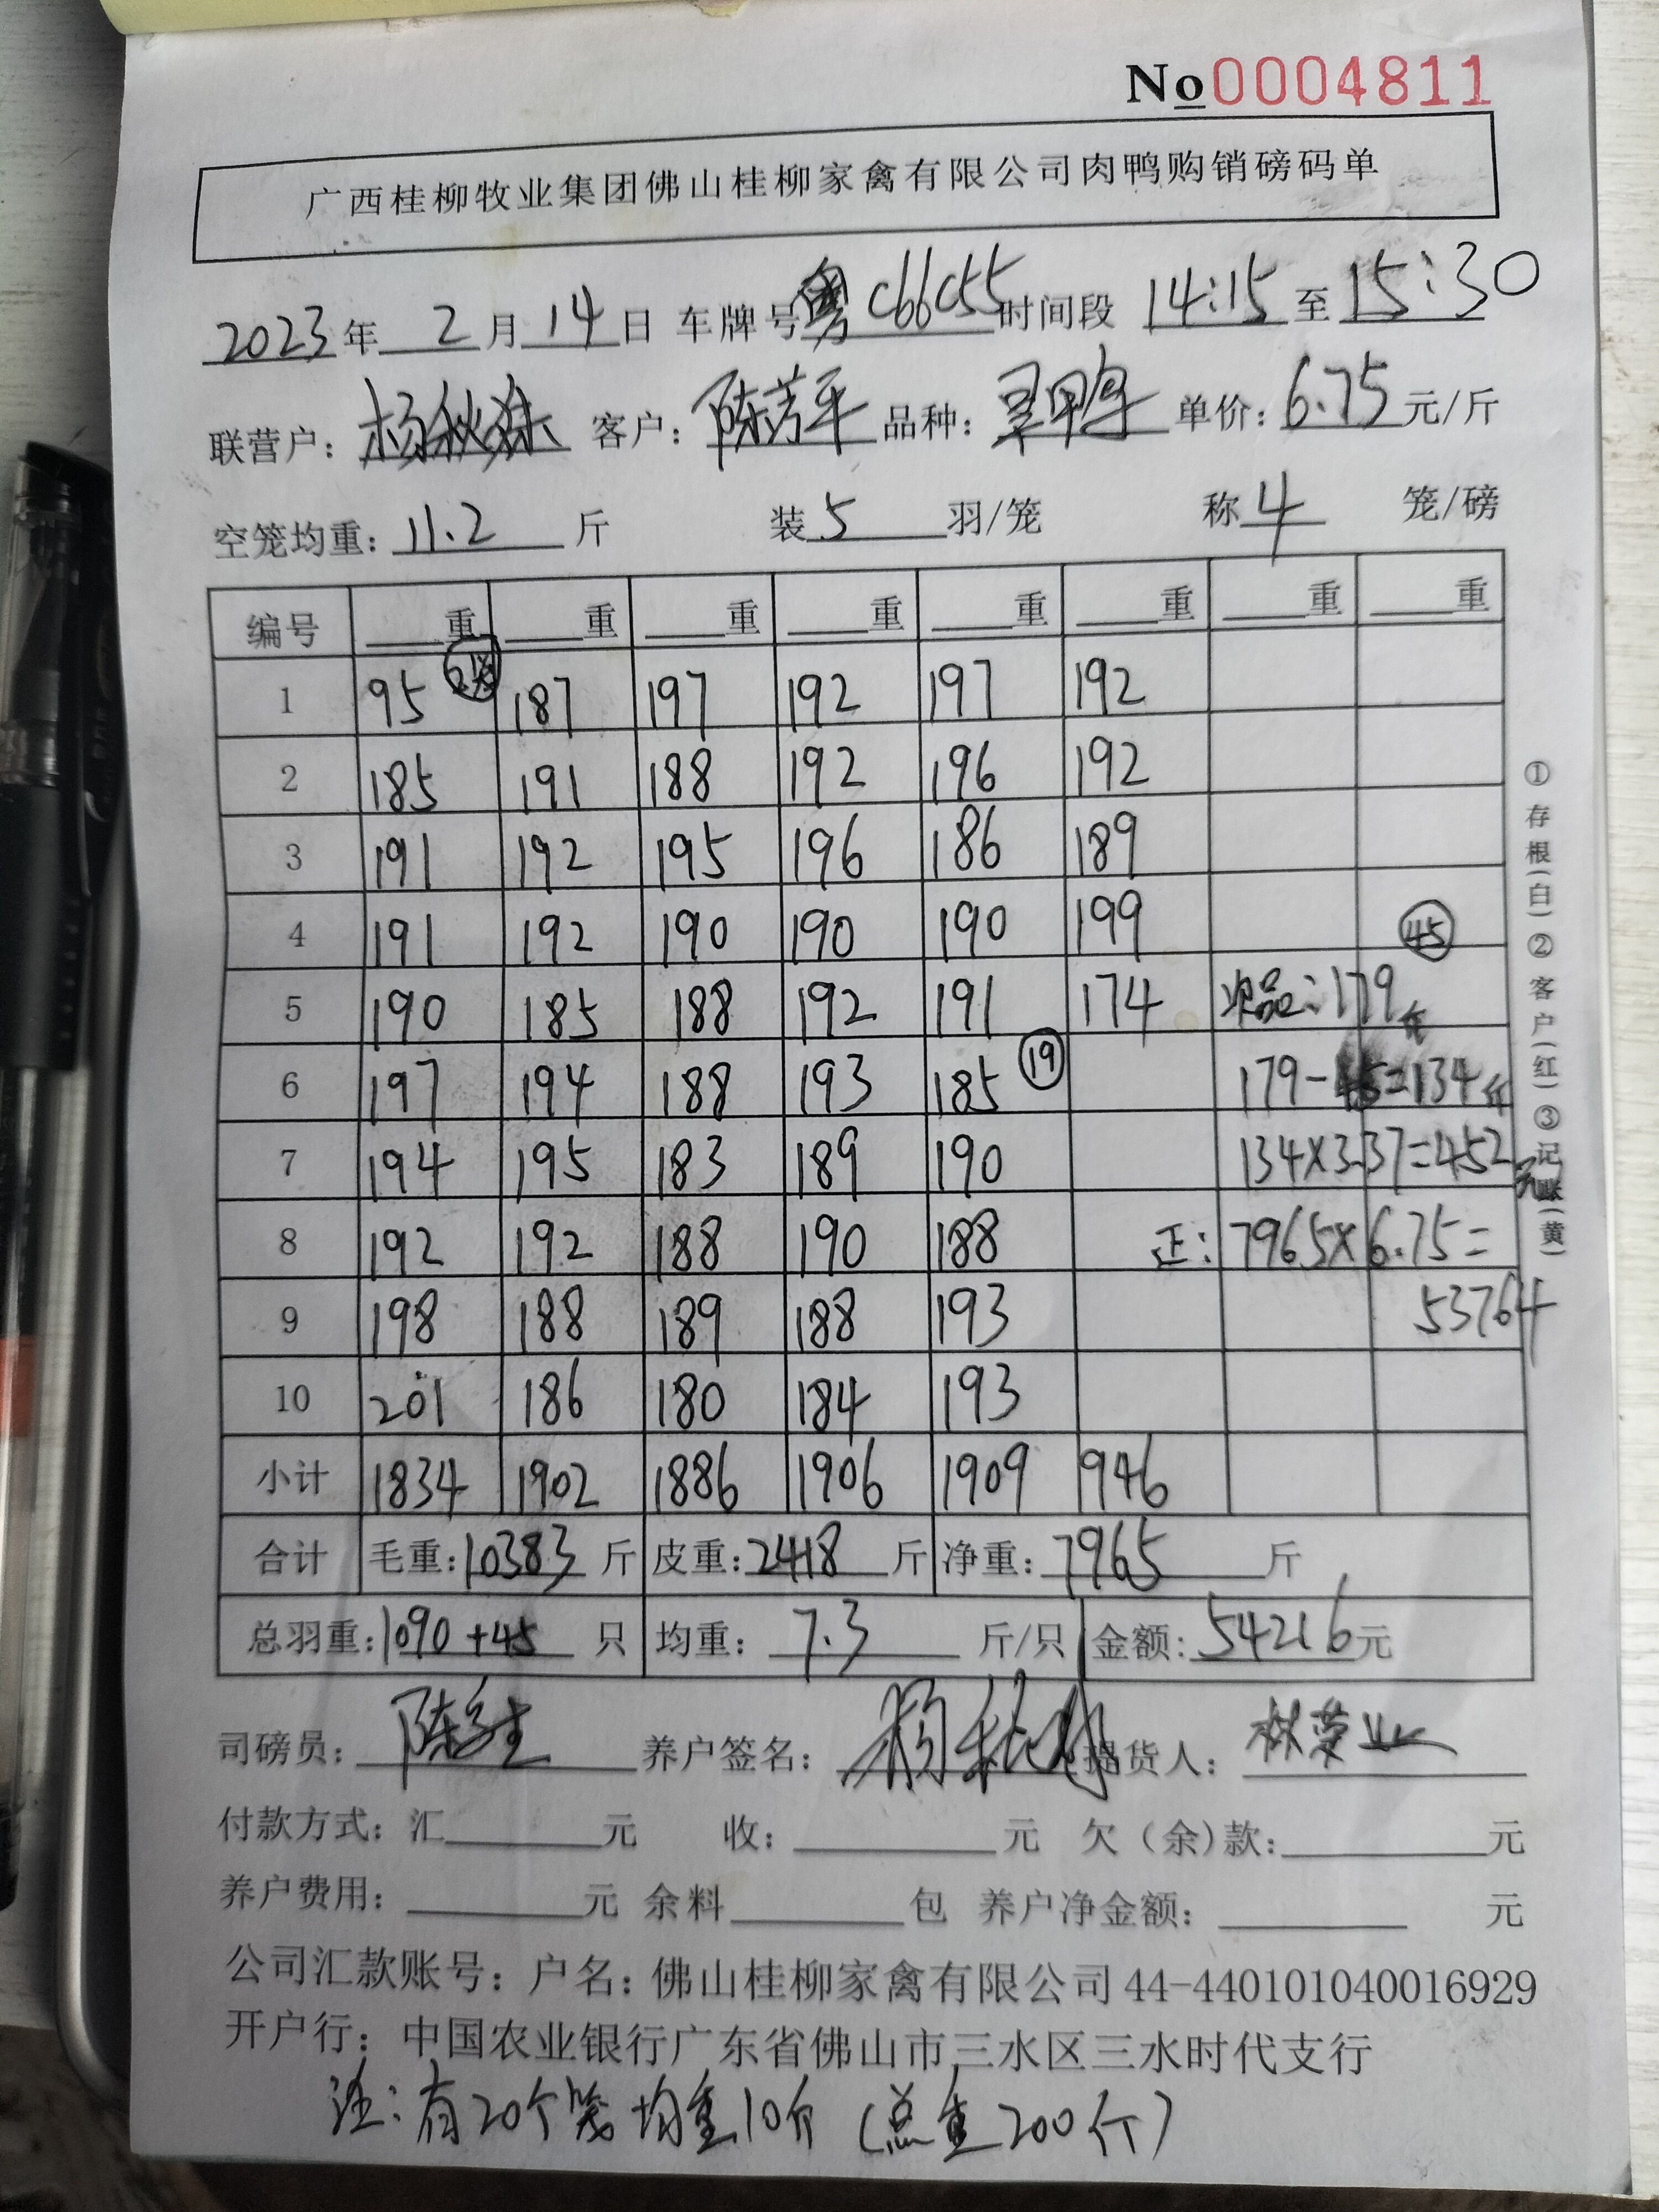 No0004811
广西桂柳牧业集团佛山桂柳家禽有限公司肉鸭购销磅码单
2023年 2月14日 车牌号粤C66C55时间段 14:15至15:30
联营户：杨秋 客户：陈芳平 品种：鸭 单价：6.75元/斤
空笼均重：11.2斤 装5羽/笼 称4笼/磅
编号 重 重 重 重 重 重 重 重
1 95 187 197 192 197 192
2 185 191 188 192 196 192
3 191 192 195 196 186 189
4 191 192 190 190 190 199 45
5 190 185 188 192 191 174 次品：179斤
6 197 194 188 193 185 19 179-45=134斤
7 194 195 183 189 190 134×3.37=452元
8 192 192 188 190 188 正：7965×6.75=
9 198 188 189 188 193 53764
10 201 186 180 184 193
小计 1834 1902 1886 1906 1909 946
合计 毛重：10383斤 皮重：2418斤 净重：7965斤
总羽重：1090+45只 均重：7.3斤/只 金额：54216元
司磅员：陈 养户签名：杨秋 提货人：林荣业
付款方式：汇元 收：元 欠（余）款：元
养户费用：元 余料包 养户净金额：元
公司汇款账号：户名：佛山桂柳家禽有限公司 44-440101040016929
开户行：中国农业银行广东省佛山市三水区三水时代支行
注：有20个笼均重10斤（总重200斤）
①存根（白）②客户（红）③记账（黄）